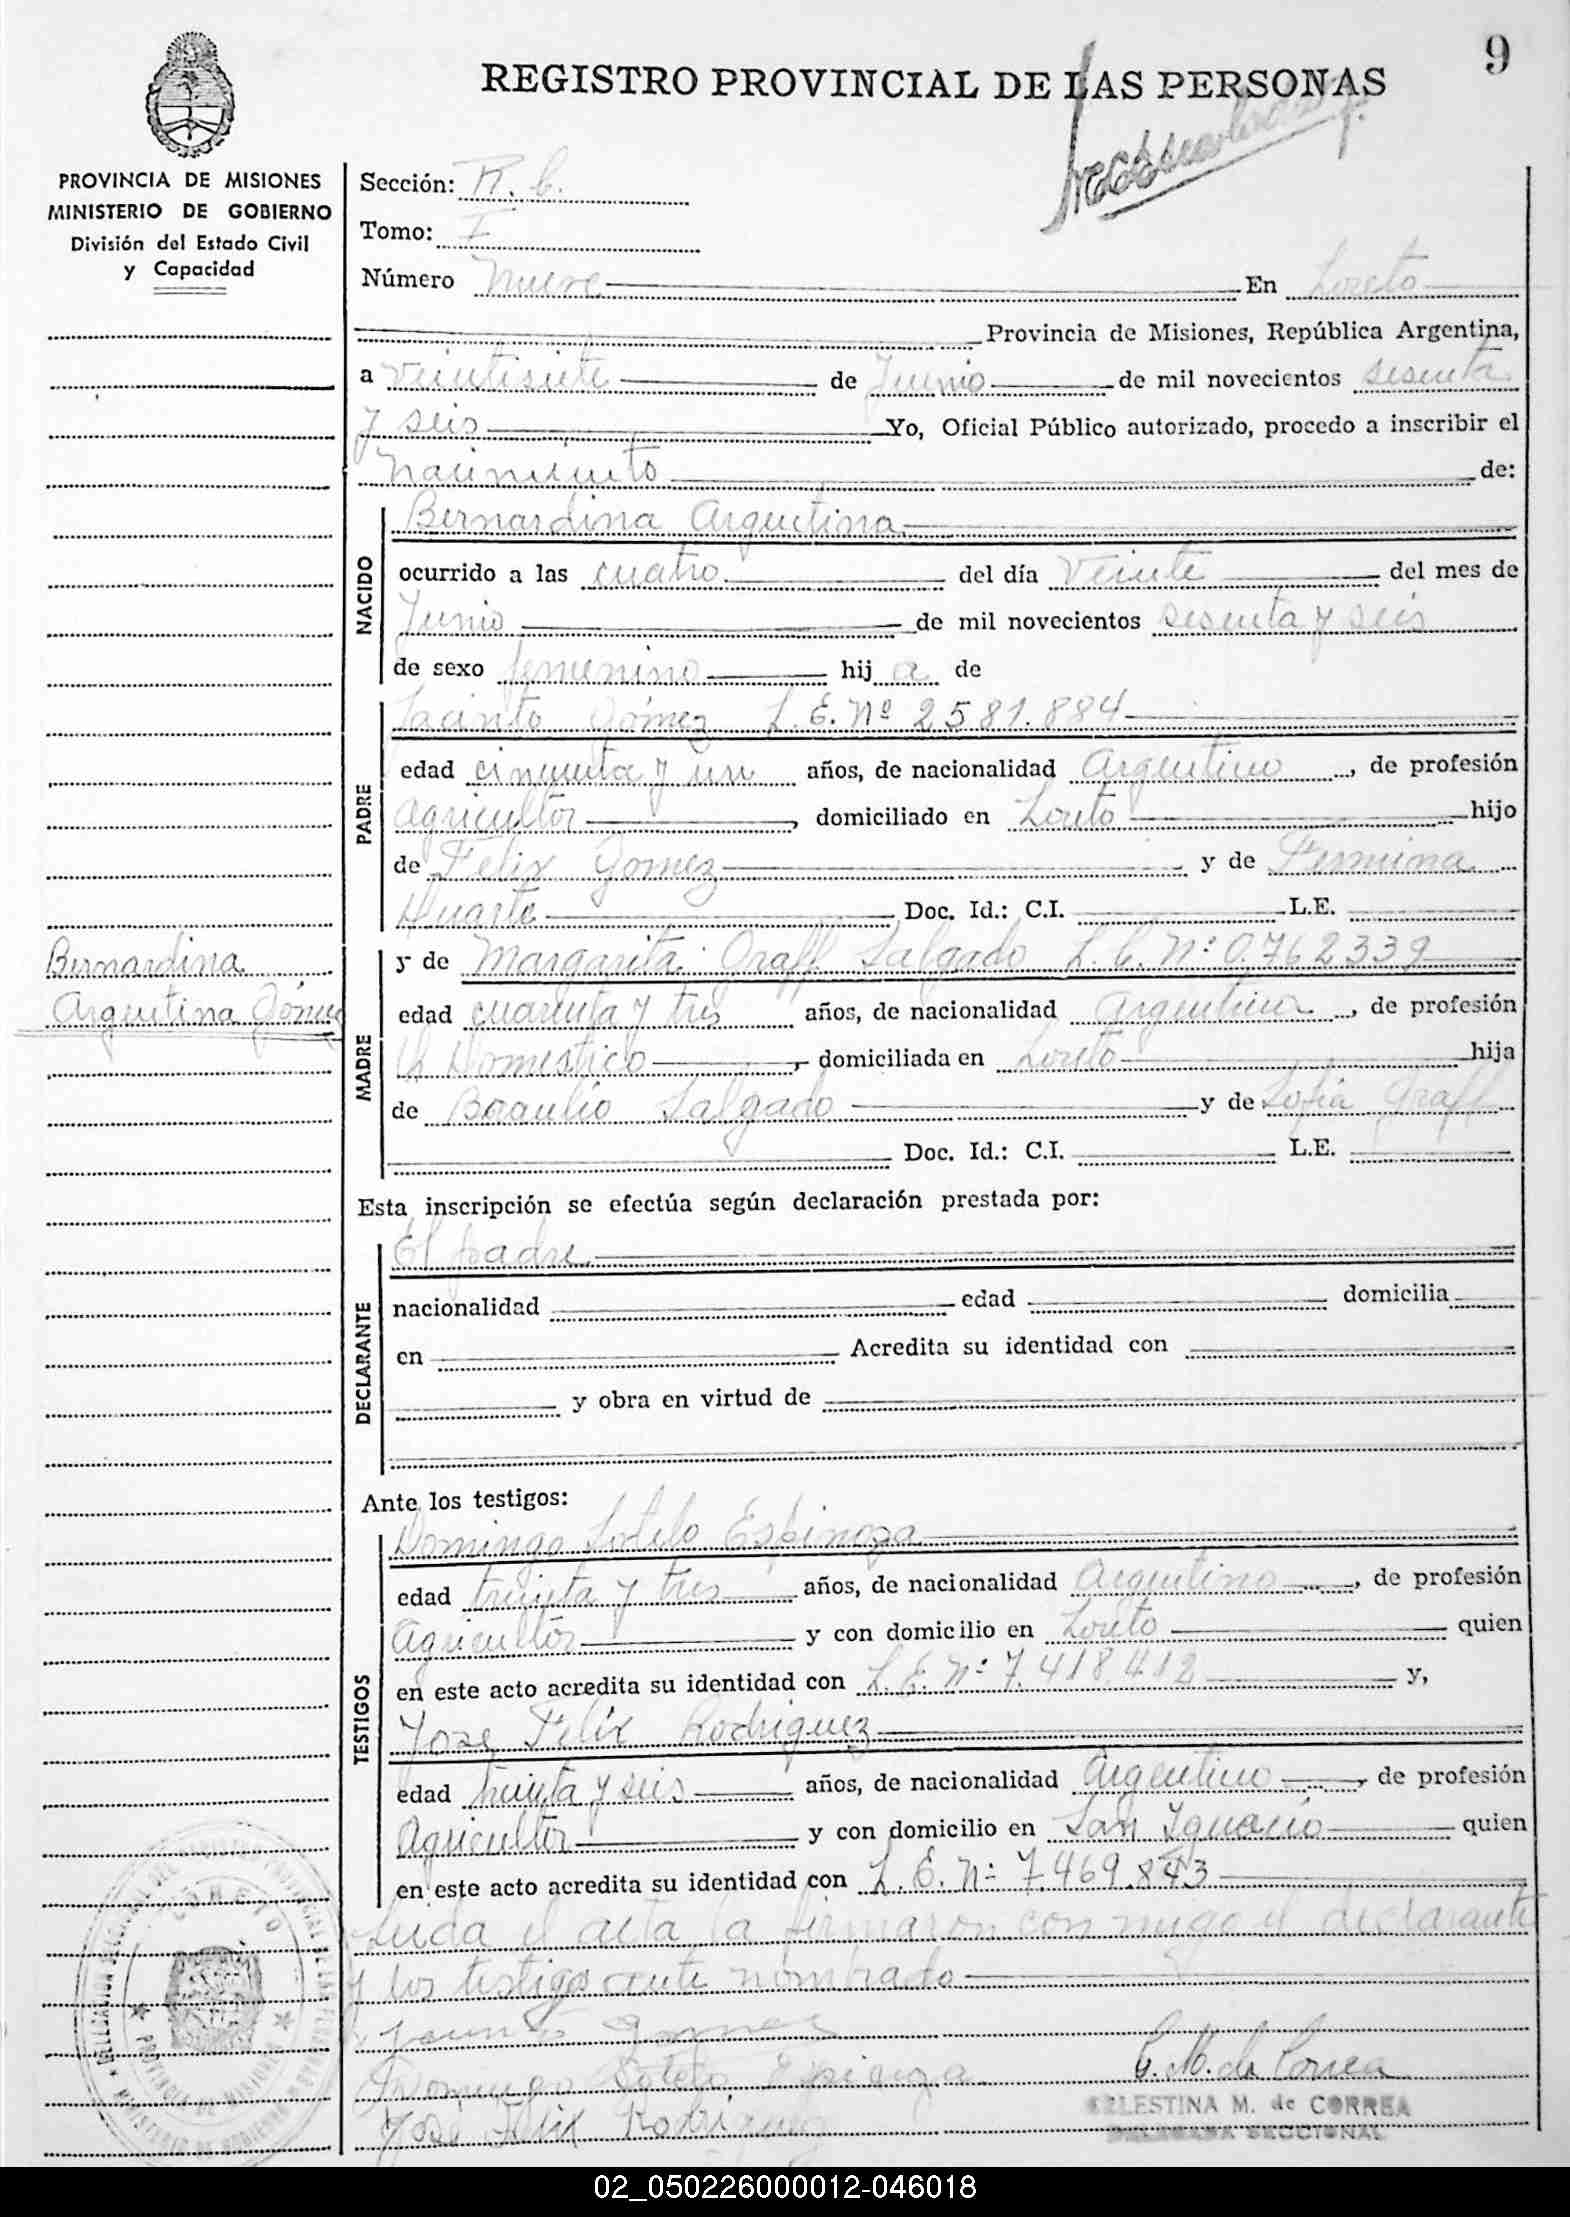 9
REGISTRO PROVINCIAL DE LAS PERSONAS
PROVINCIA DE MISIONES
MINISTERIO DE GOBIERNO
División del Estado Civil
y Capacidad
Sección: R. C.
Tomo: I
Número Nueve En Loreto
Provincia de Misiones, República Argentina,
a veintisiete de Junio de mil novecientos sesenta
y seis Yo, Oficial Público autorizado, procedo a inscribir el
Nacimiento de:
NACIDO
Bernardina Argentina
ocurrido a las cuatro del día veinte del mes de
Junio de mil novecientos sesenta y seis
de sexo femenino hija de
PADRE
Jacinto Gómez L.E. Nº 2581.884
edad cincuenta y un años, de nacionalidad Argentino, de profesión
agricultor, domiciliado en Loreto hijo
de Felix Gomez y de Fermina
Duarte Doc. Id.: C.I. L.E.
Bernardina
Argentina Gómez
MADRE
y de Margarita Graff Salgado L.C. Nº 0.762339
edad cuarenta y tres años, de nacionalidad argentina, de profesión
Q. Domestico, domiciliada en Loreto hija
de Braulio Salgado y de Sofia Graff
Doc. Id.: C.I. L.E.
Esta inscripción se efectúa según declaración prestada por:
DECLARANTE
El padre
nacionalidad edad domicilia
en Acredita su identidad con
y obra en virtud de
Ante los testigos:
TESTIGOS
Domingo Sotelo Espinoza
edad treinta y tres años, de nacionalidad Argentino, de profesión
Agricultor y con domicilio en Loreto quien
en este acto acredita su identidad con L.E. Nº 7.418.412 y,
Jose Felix Rodriguez
edad treinta y seis años, de nacionalidad Argentino, de profesión
Agricultor y con domicilio en San Ignacio quien
en este acto acredita su identidad con L.E. Nº 7.469.843
Leida el acta la firmaron con migo el declarante
y los testigos ante nombrado
Jacinto Gomez
Domingo Sotelo Espinoza
Jose Felix Rodriguez
C. M. de Correa
CELESTINA M. de CORREA
DELEGADA SECCIONAL
LORETO
PROVINCIA DE MISIONES
MINISTERIO DE GOBIERNO
02_050226000012-046018